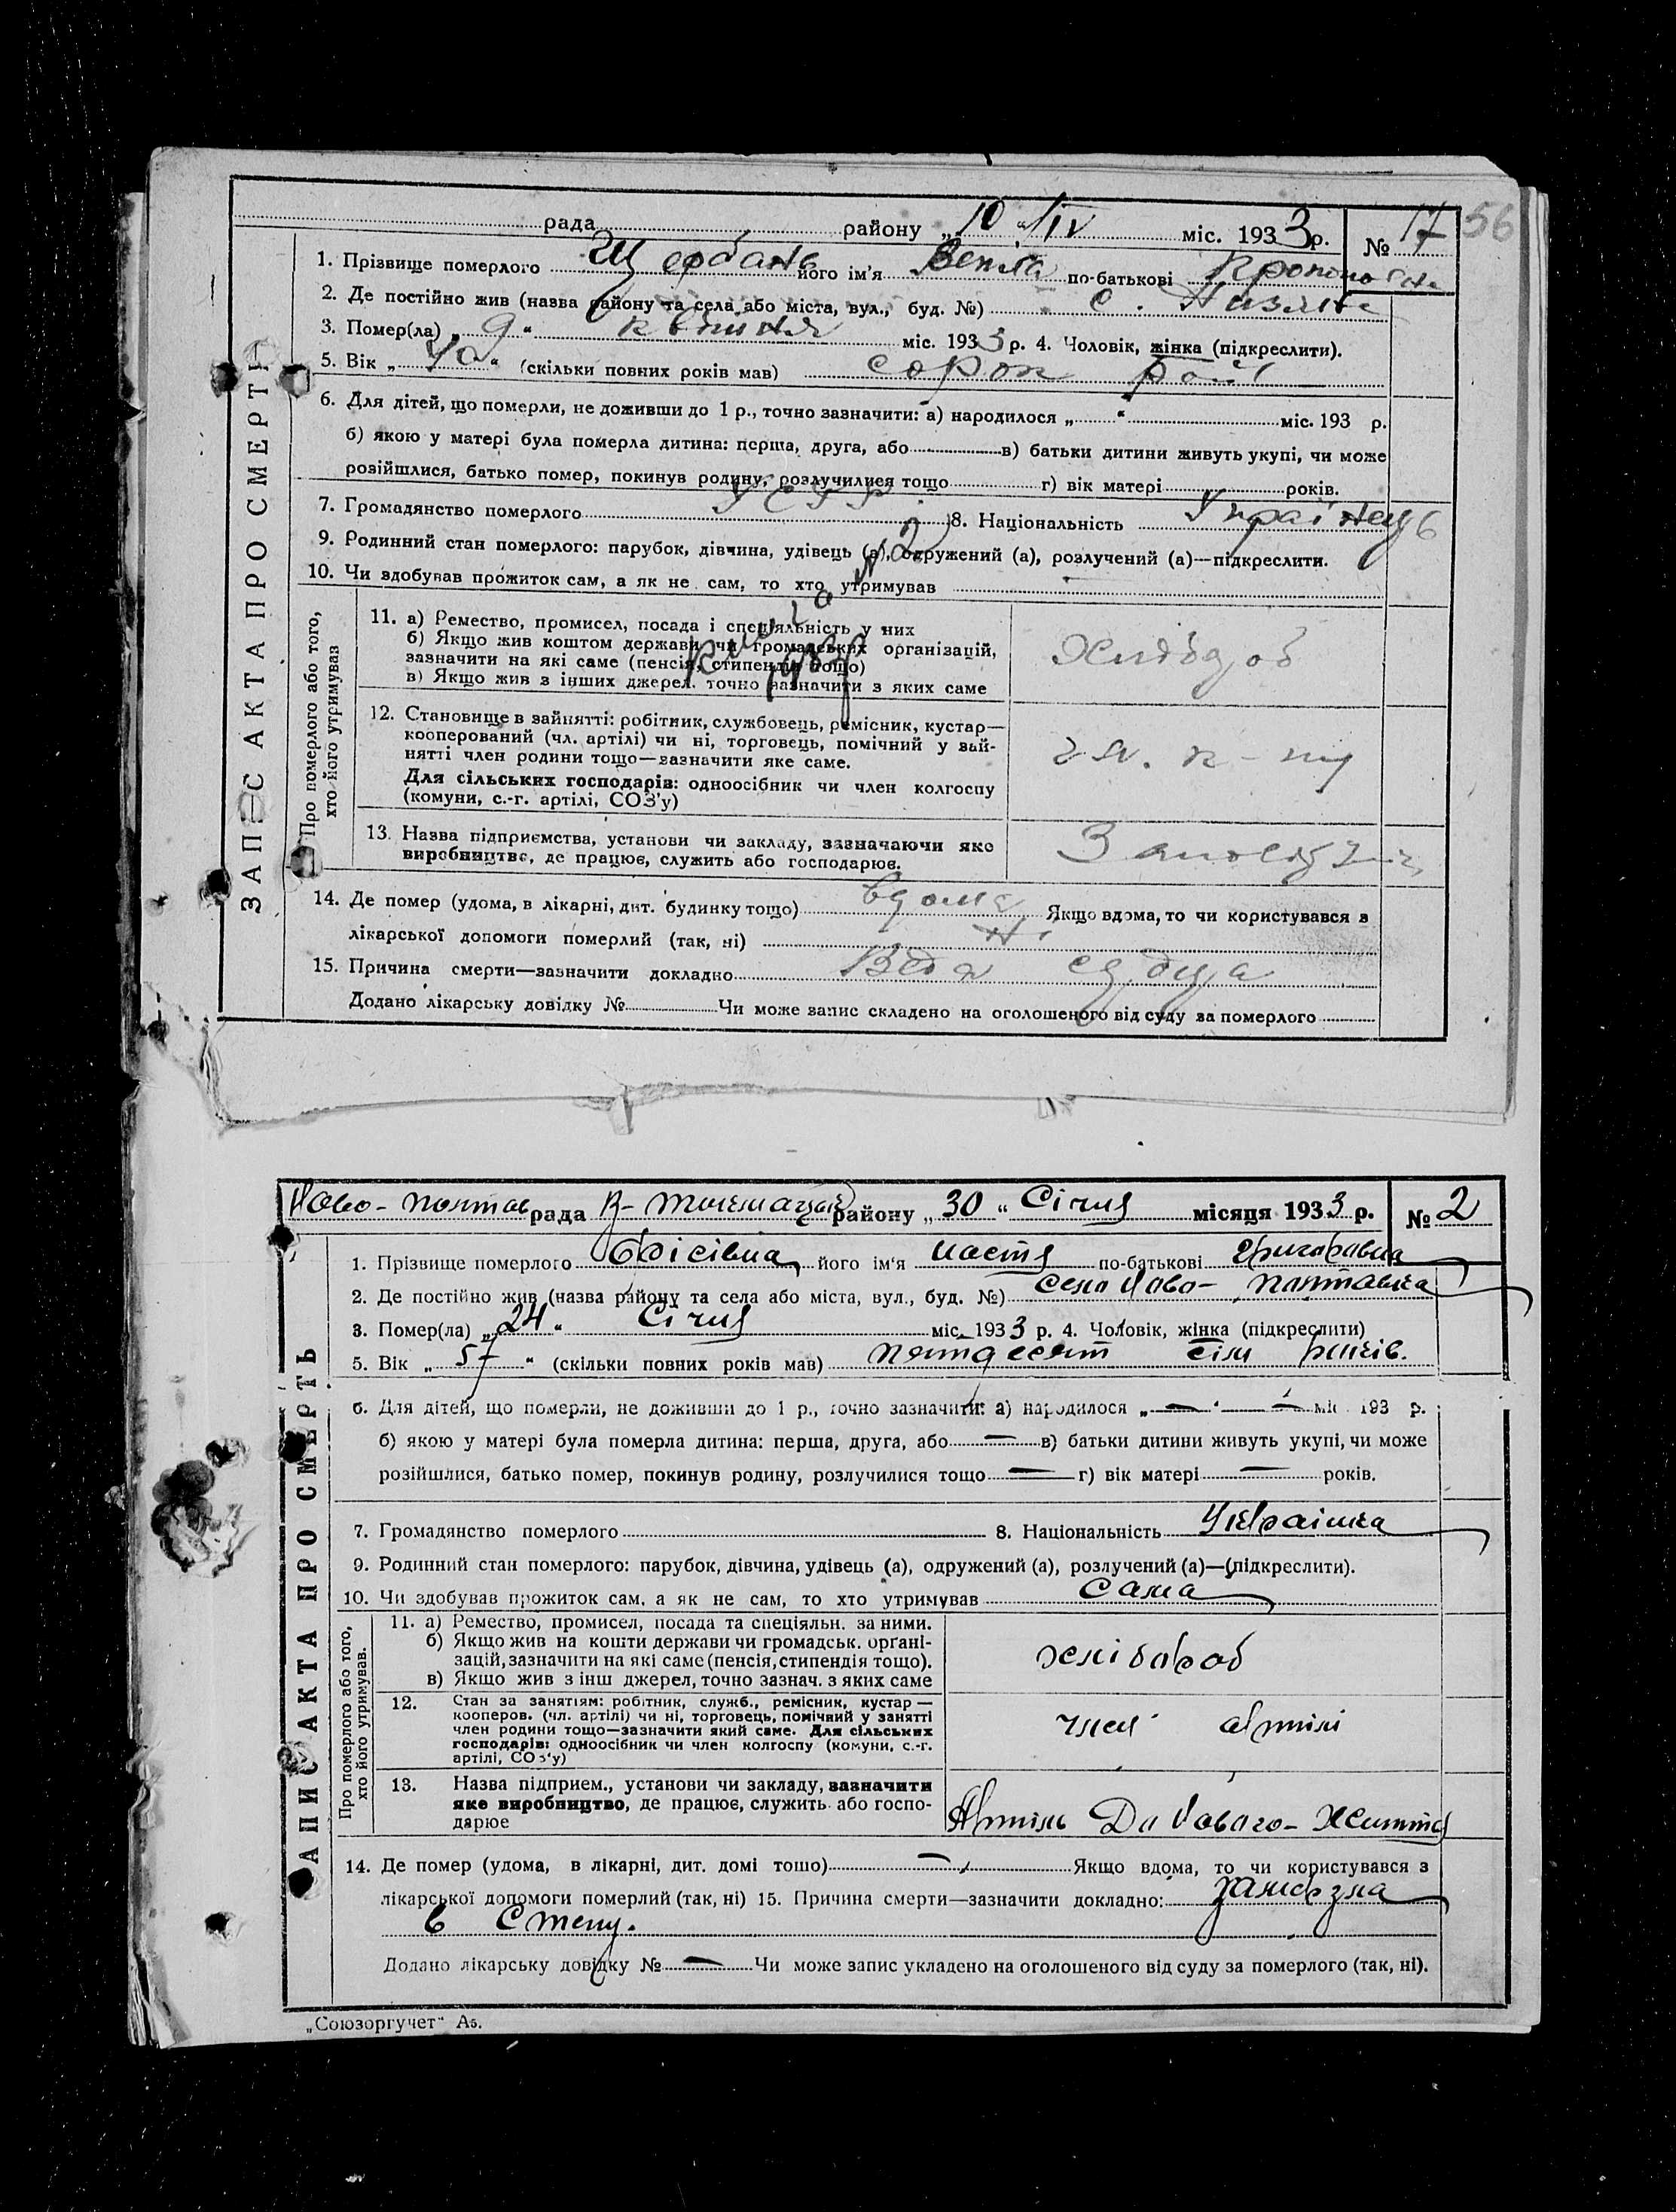 рада районy „10“ IV міс. 1933 р. № 17 56
1. Прізвище померлого Щербань його ім'я по-батькові
2. Де постійно жив (назва району та села або міста, вул., буд. №) с.
3. Помер(ла) „9“ квітня міс. 1933 р. 4. Чоловік, жінка (підкреслити).
5. Вік „40“ (скільки повних років мав) сорок
6. Для дітей, що померли, не доживши до 1 р., точно зазначити: а) народилося „ “ міс. 193 р.
б) якою у матері була померла дитина: перша, друга, або в) батьки дитини живуть укупі, чи може
розійшлися, батько помер, покинув родину, розлучилися тощо г) вік матері років.
7. Громадянство померлого УССР 8. Національність Українець
9. Родинний стан померлого: парубок, дівчина, удівець (а), одружений (а), розлучений (а)—підкреслити.
10. Чи здобував прожиток сам, а як не сам, то хто утримував
ЗАПИС АКТА ПРО СМЕРТЬ
Про померлого або того,
хто його утримував
11. а) Ремество, промисел, посада і спеціяльність у них
б) Якщо жив коштом держави чи громадських організацій,
зазначити на які саме (пенсія, стипендія тощо)
в) Якщо жив з інших джерел, точно зазначити з яких саме
12. Становище в зайнятті: робітник, службовець, ремісник, кустар—
кооперований (чл. артілі) чи ні, торговець, помічний у зай-
нятті член родини тощо—зазначити яке саме.
Для сільських господарів: одноосібник чи член колгоспу
(комуни, с.-г. артілі, СОЗ'у)
чл. к-пу
13. Назва підприємства, установи чи закладу, зазначаючи яке
виробництво, де працює, служить або господарює.
14. Де помер (удома, в лікарні, дит. будинку тощо) вдома Якщо вдома, то чи користувався з
лікарської допомоги померлий (так, ні) Ні
15. Причина смерти—зазначити докладно
Додано лікарську довідку № Чи може запис складено на оголошеного від суду за померлого
Ново-Полтав рада району „30“ Січня місяця 1933 р. № 2
1. Прізвище померлого його ім'я Настя по-батькові Григоравна
2. Де постійно жив (назва району та села або міста, вул., буд. №) село Ново-Полтавка
3. Помер(ла) „24“ Січня міс. 1933 р. 4. Чоловік, жінка (підкреслити)
5. Вік „57“ (скільки повних років мав) пятдесят сім років.
6. Для дітей, що померли, не доживши до 1 р., точно зазначити: а) народилося „—“ — міс. 193 р.
б) якою у матері була померла дитина: перша, друга, або — в) батьки дитини живуть укупі, чи може
розійшлися, батько помер, покинув родину, розлучилися тощо — г) вік матері — років.
7. Громадянство померлого 8. Національність Українка
9. Родинний стан померлого: парубок, дівчина, удівець (а), одружений (а), розлучений (а)—(підкреслити).
10. Чи здобував прожиток сам, а як не сам, то хто утримував сама
ЗАПИС АКТА ПРО СМЕРТЬ
Про померлого або того,
хто його утримував.
11. а) Ремество, промисел, посада та спеціяльн. за ними.
б) Якщо жив на кошти держави чи громадськ. орґані-
зацій, зазначити на які саме (пенсія, стипендія тощо).
в) Якщо жив з інш джерел, точно зазнач. з яких саме
хлібароб
12. Стан за занятіям: робітник, служб., ремісник, кустар —
кооперов. (чл. артілі) чи ні, торговець, помічний у занятті
член родини тощо—зазначити який саме. Для сільських
господарів: одноосібник чи член колгоспу (комуни, с.-г.
артілі, СОЗ'у)
член артілі
13. Назва підприєм., установи чи закладу, зазначити
яке виробництво, де працює, служить або госпо-
дарює
Артіль До Нового-Життя
14. Де помер (удома, в лікарні, дит. домі тошо) — Якщо вдома, то чи користувався з
лікарської допомоги померлий (так, ні) 15. Причина смерти—зазначити докладно: замерзла
в степу.
Додано лікарську довідку № — Чи може запис укладено на оголошеного від суду за померлого (так, ні).
„Союзоргучет“ А5.